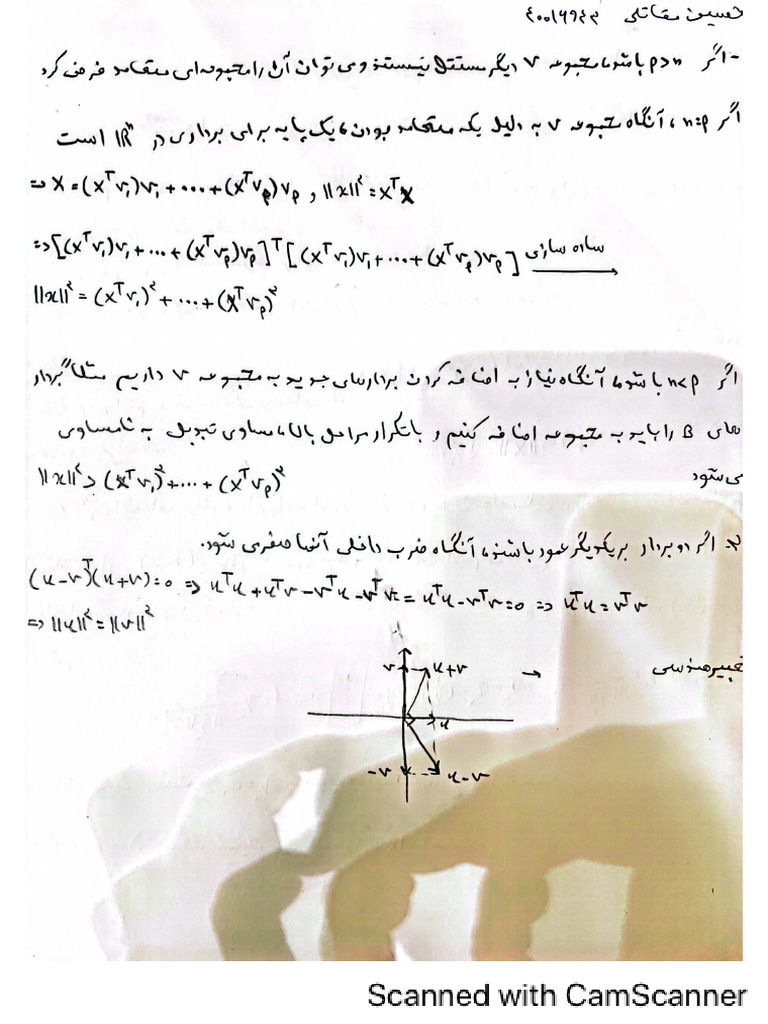 حسین مقاتلی ۴۰۰۱۶۹۴۳
- اگر p>n باشد، مجموعه v دیگر مستقل نیست و نمی توان آن را مجموعه ای متعامد فرض کرد
اگر n=p، آنگاه مجموعه v به دلیل یکه متعامد بودن، یک پایه برای برداری در IRⁿ است
=> X = (xᵀv₁)v₁ + ... + (xᵀvₚ)vₚ , ||x||² = xᵀx
=> [(xᵀv₁)v₁ + ... + (xᵀvₚ)vₚ]ᵀ [(xᵀv₁)v₁ + ... + (xᵀvₚ)vₚ] ساده سازی →
||x||² = (xᵀv₁)² + ... + (xᵀvₚ)²
اگر n<p باشد، آنگاه نیاز به اضافه کردن بردارهای جدید به مجموعه v داریم مثلاً بردار
های B را باید به مجموعه اضافه کنیم و با تکرار مراحل بالا، مساوی تبدیل به نامساوی
می شود ||x||² ≥ (xᵀv₁)² + ... + (xᵀvₚ)²
۲- اگر دو بردار بر یکدیگر عمود باشند، آنگاه ضرب داخلی آنها صفر می شود.
(u-v)ᵀ(u+v)=0 => uᵀu + uᵀv - vᵀu - vᵀv = uᵀu - vᵀv = 0 => uᵀu = vᵀv
=> ||u||² = ||v||²
تعبیر هندسی →
v u+v
u
-v u-v
Scanned with CamScanner